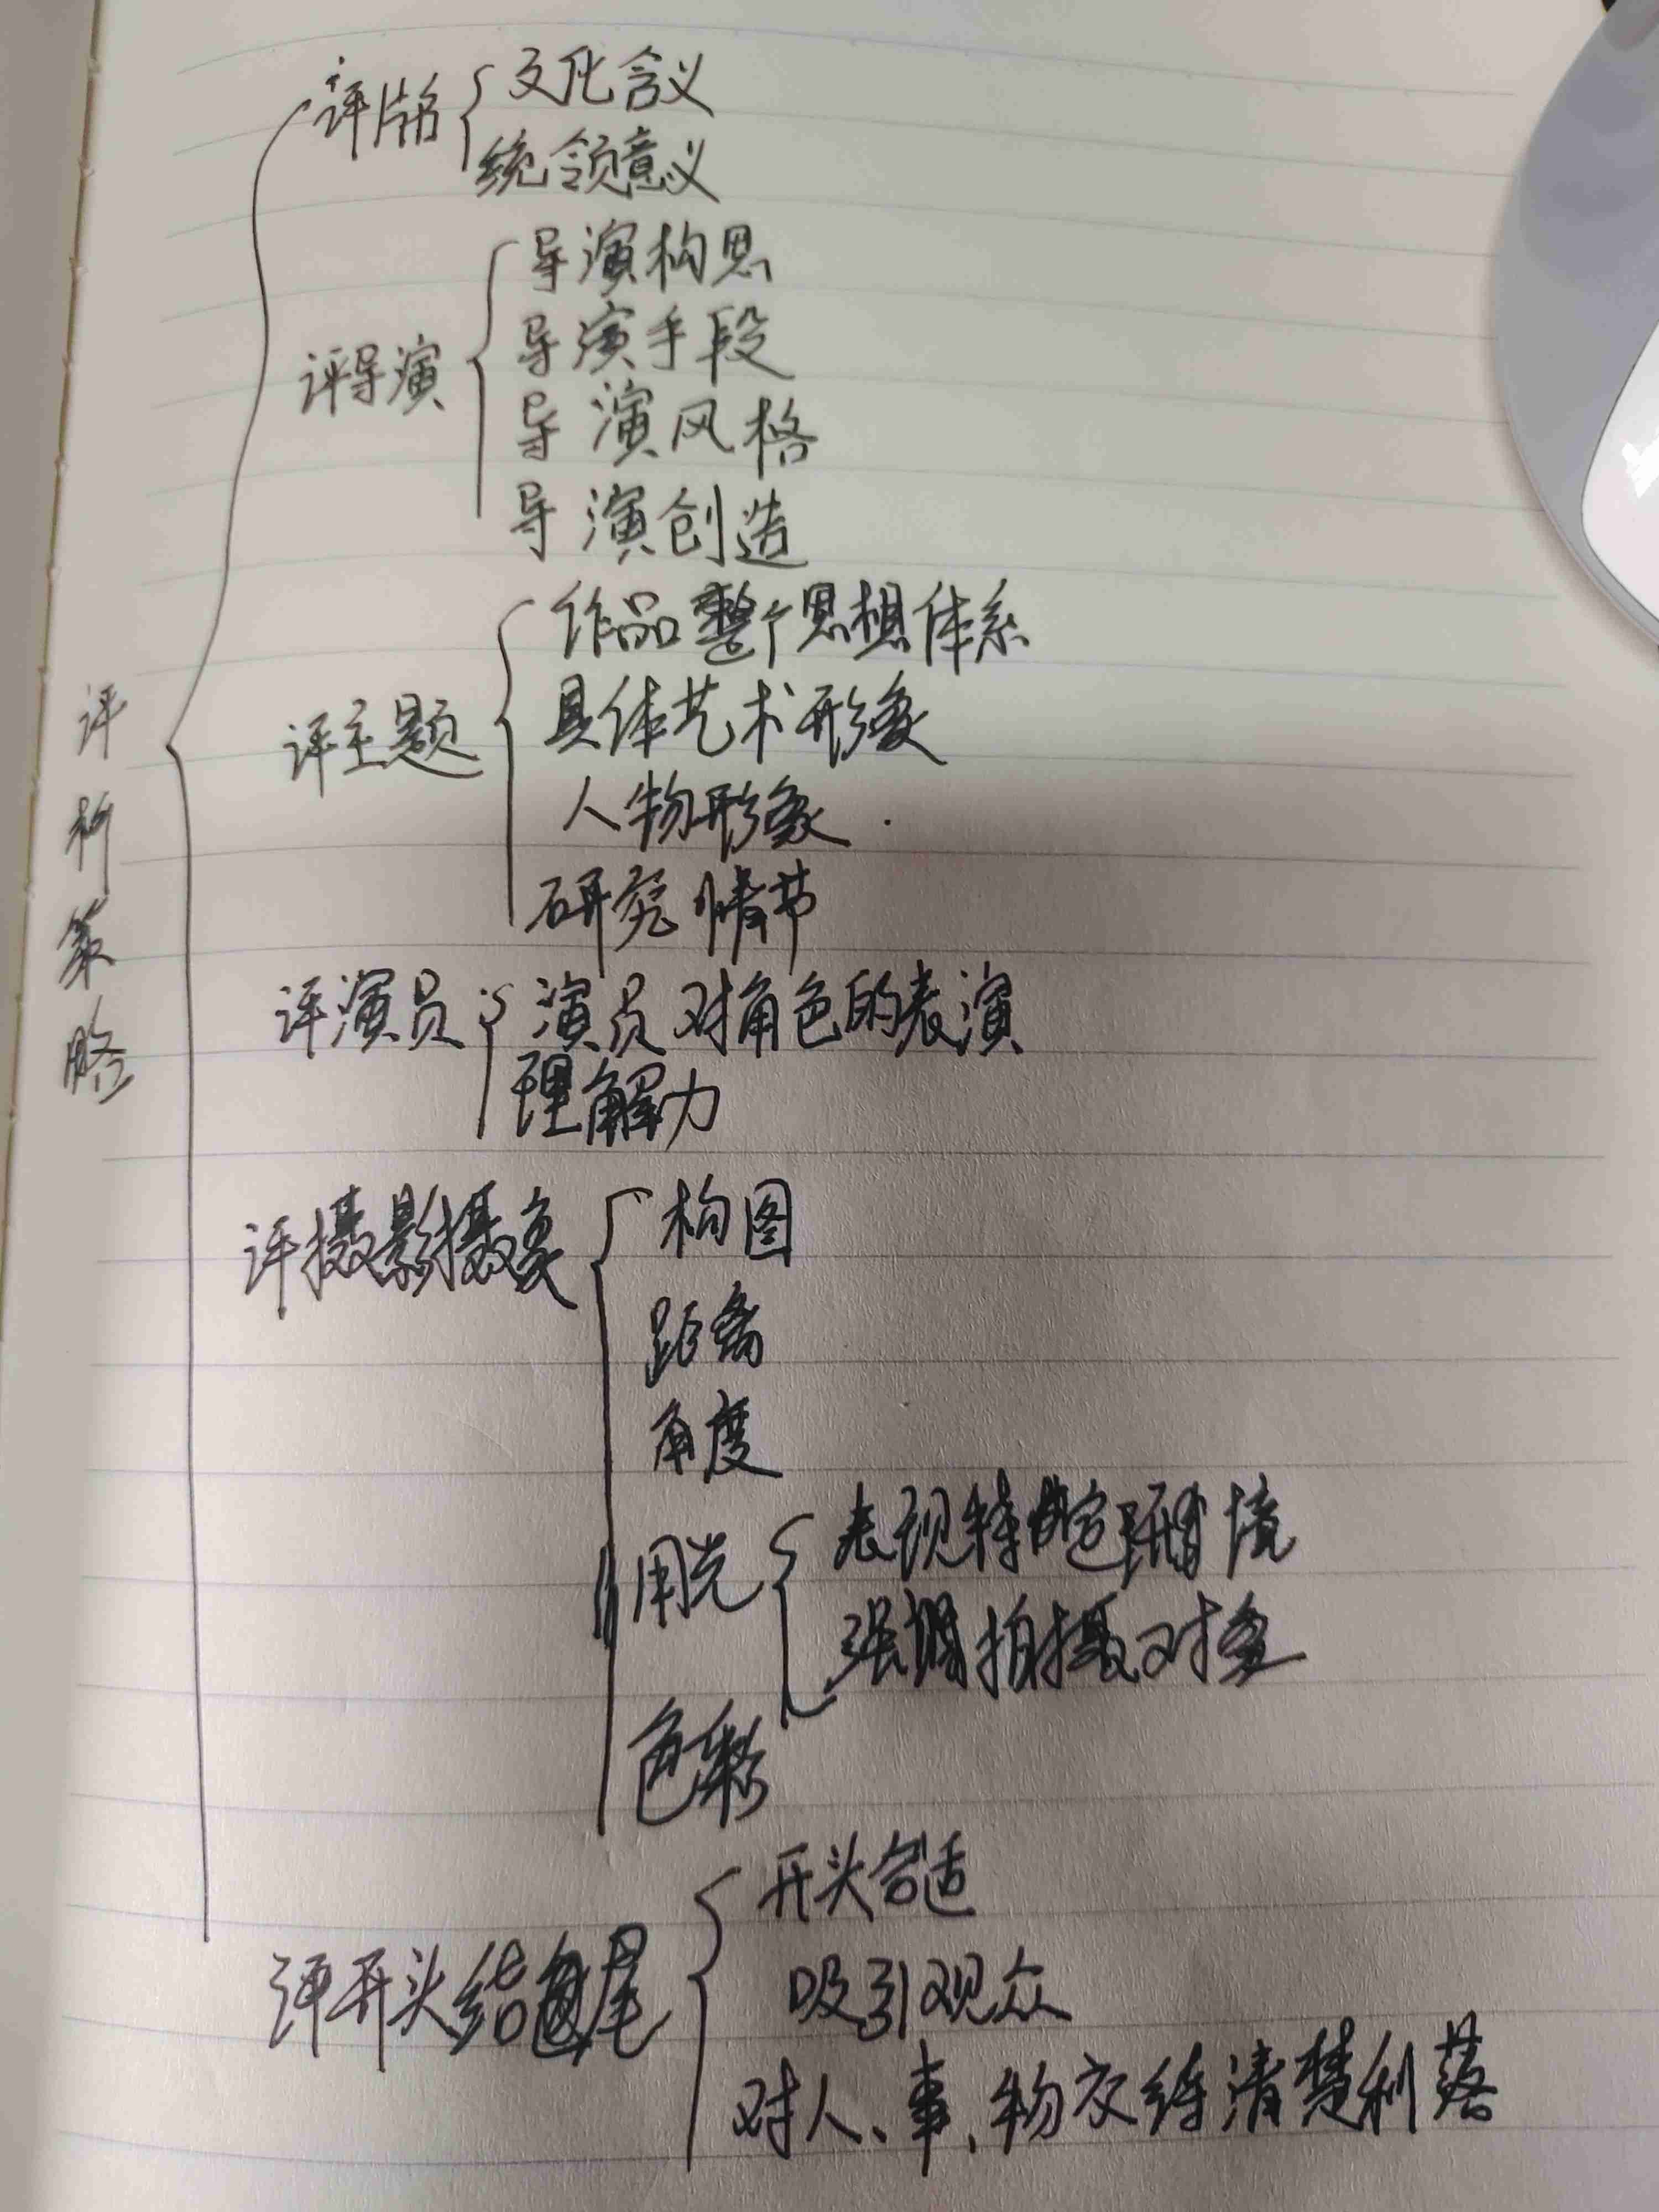 评析策略
评片名
文化含义
统领意义
评导演
导演构思
导演手段
导演风格
导演创造
评主题
作品整个思想体系
具体艺术形象
人物形象
研究情节
评演员
演员对角色的表演
理解力
评摄影摄象
构图
距离
角度
用光
表现特定环境
强调拍摄对象
色彩
评开头结尾
开头合适
吸引观众
对人、事、物交待清楚利落